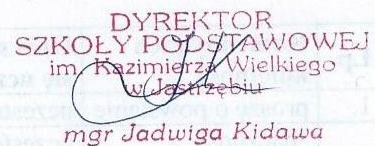 DYREKTOR
SZKOŁY PODSTAWOWEJ
im. Kazimierza Wielkiego
w Jastrzębiu
mgr Jadwiga Kidawa